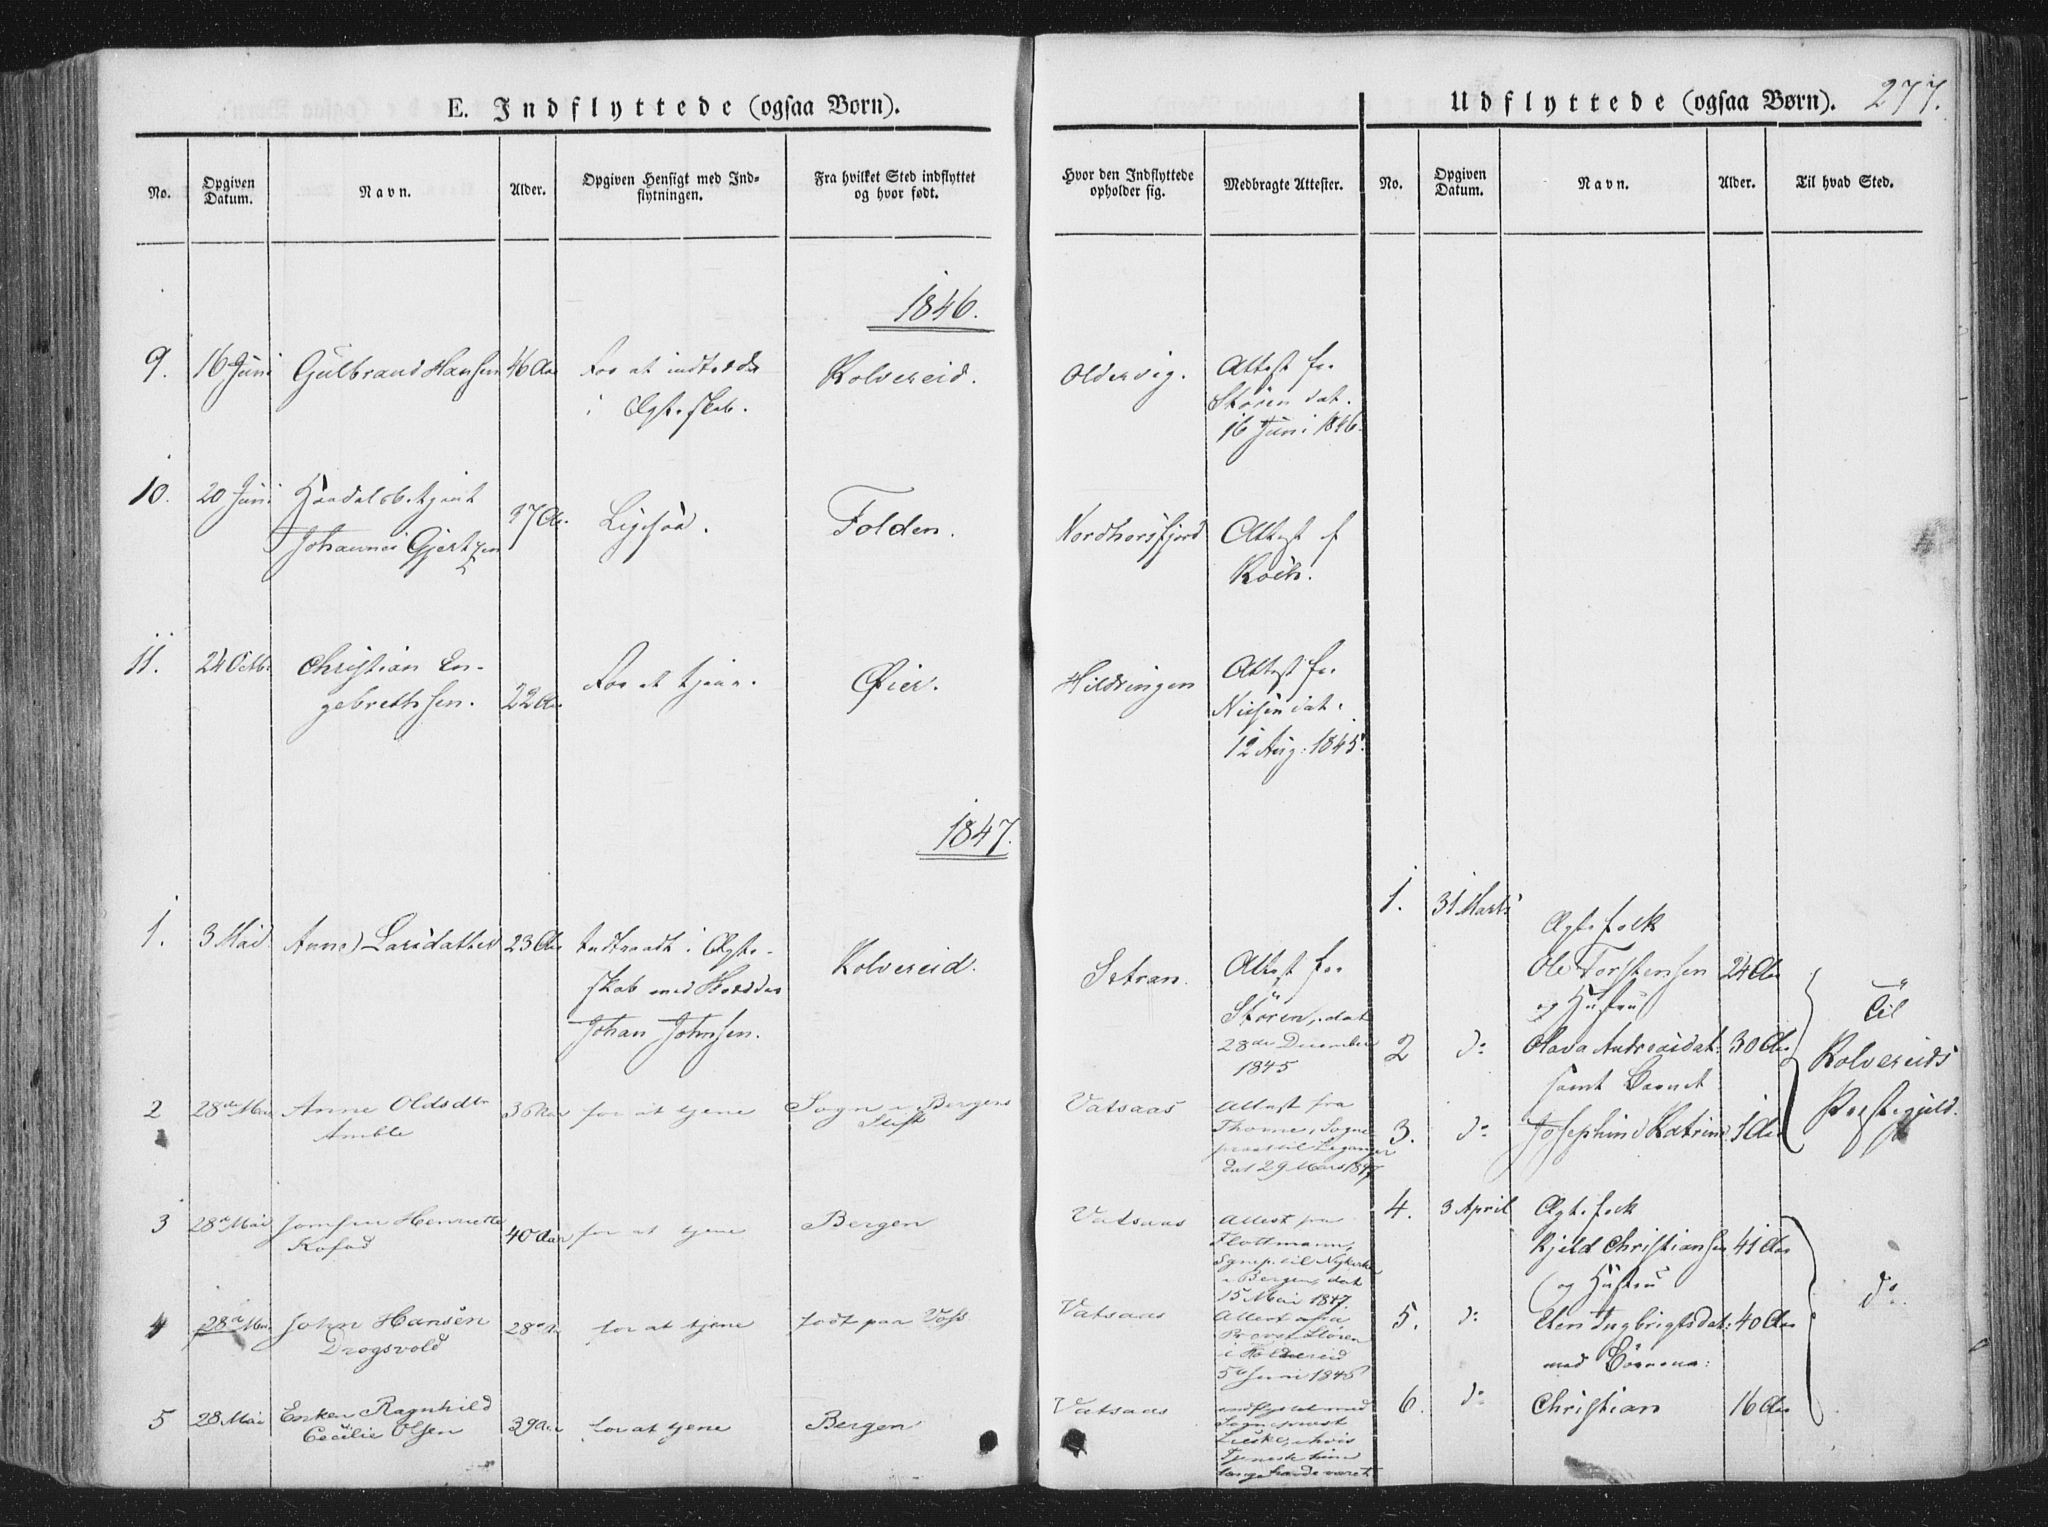 E. Indflyttede (ogsaa Børn).
No.
Opgiven Datum.
Navn.
Alder.
Opgiven Hensigt med Indflytningen.
Fra hvilket Sted indflyttet og hvor født.
1846.
9. 16 Juni Gulbrand Hansen 46 Aar For at indtræde Kolvereid.
i Ægteskab.
10. 20 Juni Handelsbetjent
Johannes Gjertzen 37 Aar. Ligesaa. Folden.
11. 24 Octbr Christian En-
gebrethsen. 22 Aar For at tjene. Øier.
1847.
1. 3 Mai Anne Larsdatter 23 Aar Indtraadt i Ægte- Kolvereid.
skab med
Johan Johnsen.
2 28de Mai Anne Oldsdtr 36 Aar for at tjene Sogn i Bergens
Amble Stift
3 28de Mai Jomfru Henriette 40 Aar for at tjene Bergen
Kofod
4 28de Mai John Hansen 28 Aar for at tjene født paa Voss
Drogsvold
5 28 Mai Enken Ragnhild 39 Aar for at tjene Bergen
Cecilie Olsen
Udflyttede (ogsaa Børn). 277.
Hvor den Indflyttede opholder sig.
Medbragte Attester.
No.
Opgiven Datum.
Navn.
Alder.
Til hvad Sted.
Oldervig. Attest fra
Stören dat.
16 Juni 1846.
Nordhorsfjord Attest f
Koch.
Hildringen Attest fra
dat.
12 Aug. 1845.
Setran. Attest fra
Stören, dat
28de December
1845
Vatsaas Attest fra
Thome, Sogne
præst til Leganger
dat 29 Mars 1847
Vatsaas Attest fra
Flottmann,
Sognep. til Nykirke
i Bergen, dat
15 Mai 1847.
Vatsaas Attest fra
Provst Stören
i Kolvereid
5te Juni 1846
Vatsaas indflyttet med
Sognepræst
hvis
Tjeneste hun
længe havde været
1. 31 Marts Ægtefolk
Ole Torstensen 24 Aar
og Hustru
2 do Olava Andreasdat: 30 Aar
samt Barnet
3. do Josephine Katrine 1 Aar
Til
Kolvereids
Præstegjeld.
4. 3 April Ægtefolk
Kjeld Christiansen 41 Aar
og Hustru
5. do Elen Ingbrigtsdat: 40 Aar
med Börnene:
6. do Christian 16 Aar
do